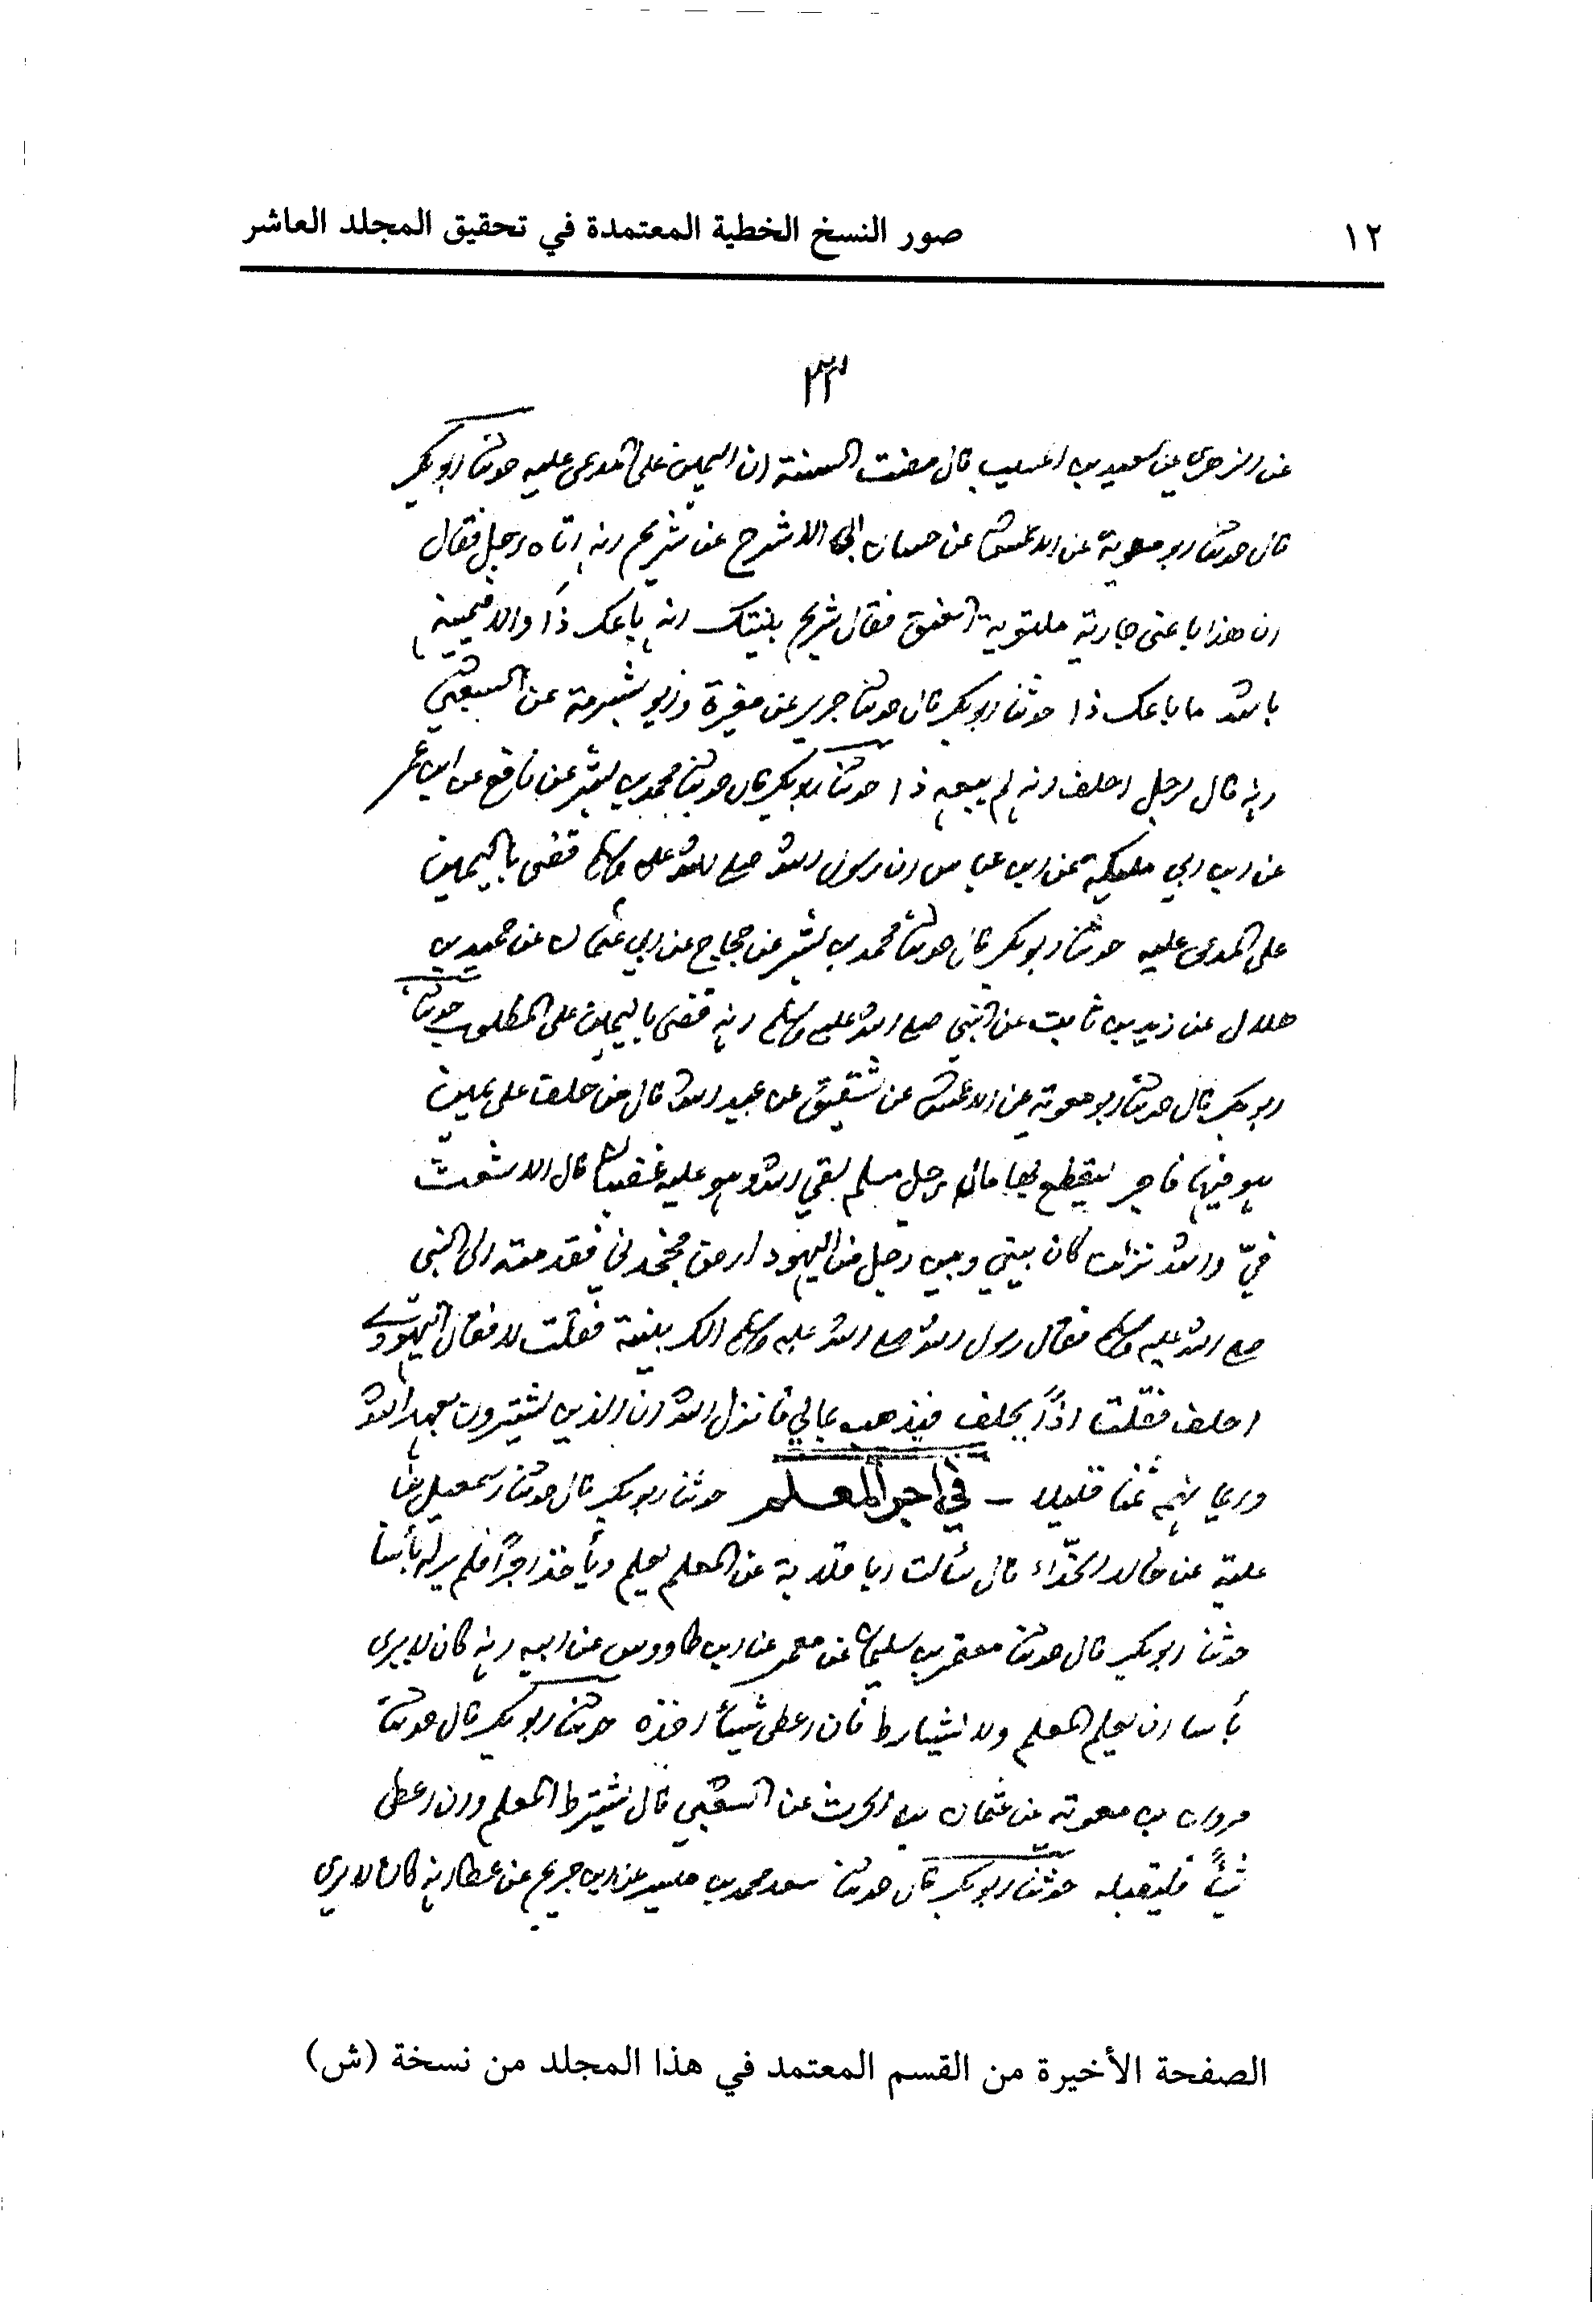 ١٢
صور النسخ الخطية المعتمدة في تحقيق المجلد العاشر
٣٣
عن الزهري عن سعيد بن المسيب قال مضت السنة ان اليمين على المدعى عليه حدثنا ابو بكر
قال حدثنا ابو معوية عن الاعمش عن حسان ابى الاشرح عن شريح انه اتاه رجل فقال
ان هذا باعنى جارية ملتوية العنق فقال شريح بينتك انه باعك ذا والا فيمينه
بالله ما باعك ذا حدثنا ابو بكر قال حدثنا جرير عن مغيرة وابو شبرمة عن الشعبي
انه قال لرجل احلف انه لم يبعه ذا حدثنا ابو بكر قال حدثنا محمد بن بشر عن نافع عن ابن عمر
عن ابن ابي مليكة عن ابن عباس ان رسول الله صلى الله عليه وسلم قضى باليمين
على المدعى عليه حدثنا ابو بكر قال حدثنا محمد بن بشر عن حجاج عن ابي عثمان عن حميد بن
هلال عن زيد بن ثابت عن النبي صلى الله عليه وسلم انه قضى باليمين على المطلوب حدثنا
ابو بكر قال حدثنا ابو معوية عن الاعمش عن شقيق عن عبد الله قال من حلف على يمين
هو فيها فاجر ليقطع بها مال رجل مسلم لقي الله وهو عليه غضبان قال الاشعث
فيّ والله نزلت كان بيني وبين رجل من اليهود ارض فجحدني فقدمته الى النبى
صلى الله عليه وسلم فقال رسول الله صلى الله عليه وسلم الك بينة فقلت لا فقال لليهودي
احلف فقلت اذاً يحلف فيذهب بمالي فانزل الله ان الذين يشترون بعهد الله
وايمانهم ثمنا قليلا - في اجر المعلم حدثنا ابو بكر قال حدثنا اسمعيل بن
علية عن خالد الحذّاء قال سألت ابا قلابة عن المعلم يعلم ويأخذ اجراً فلم ير له بأسا
حدثنا ابو بكر قال حدثنا معتمر بن سليمان عن معمر عن ابن طاووس عن ابيه انه كان لا يرى
بأسا ان يعلم المعلم ولا يشارط فان اعطى شيئاً اخذه حدثنا ابو بكر قال حدثنا
مروان بن معوية عن عثمان بن الحرث عن الشعبي قال لا يشترط المعلم وان اعطى
شيئاً فليقبله حدثنا ابو بكر قال حدثنا محمد بن ميسر عن ابن جريج عن عطا انه كان لا يرى
الصفحة الأخيرة من القسم المعتمد في هذا المجلد من نسخة (ش)